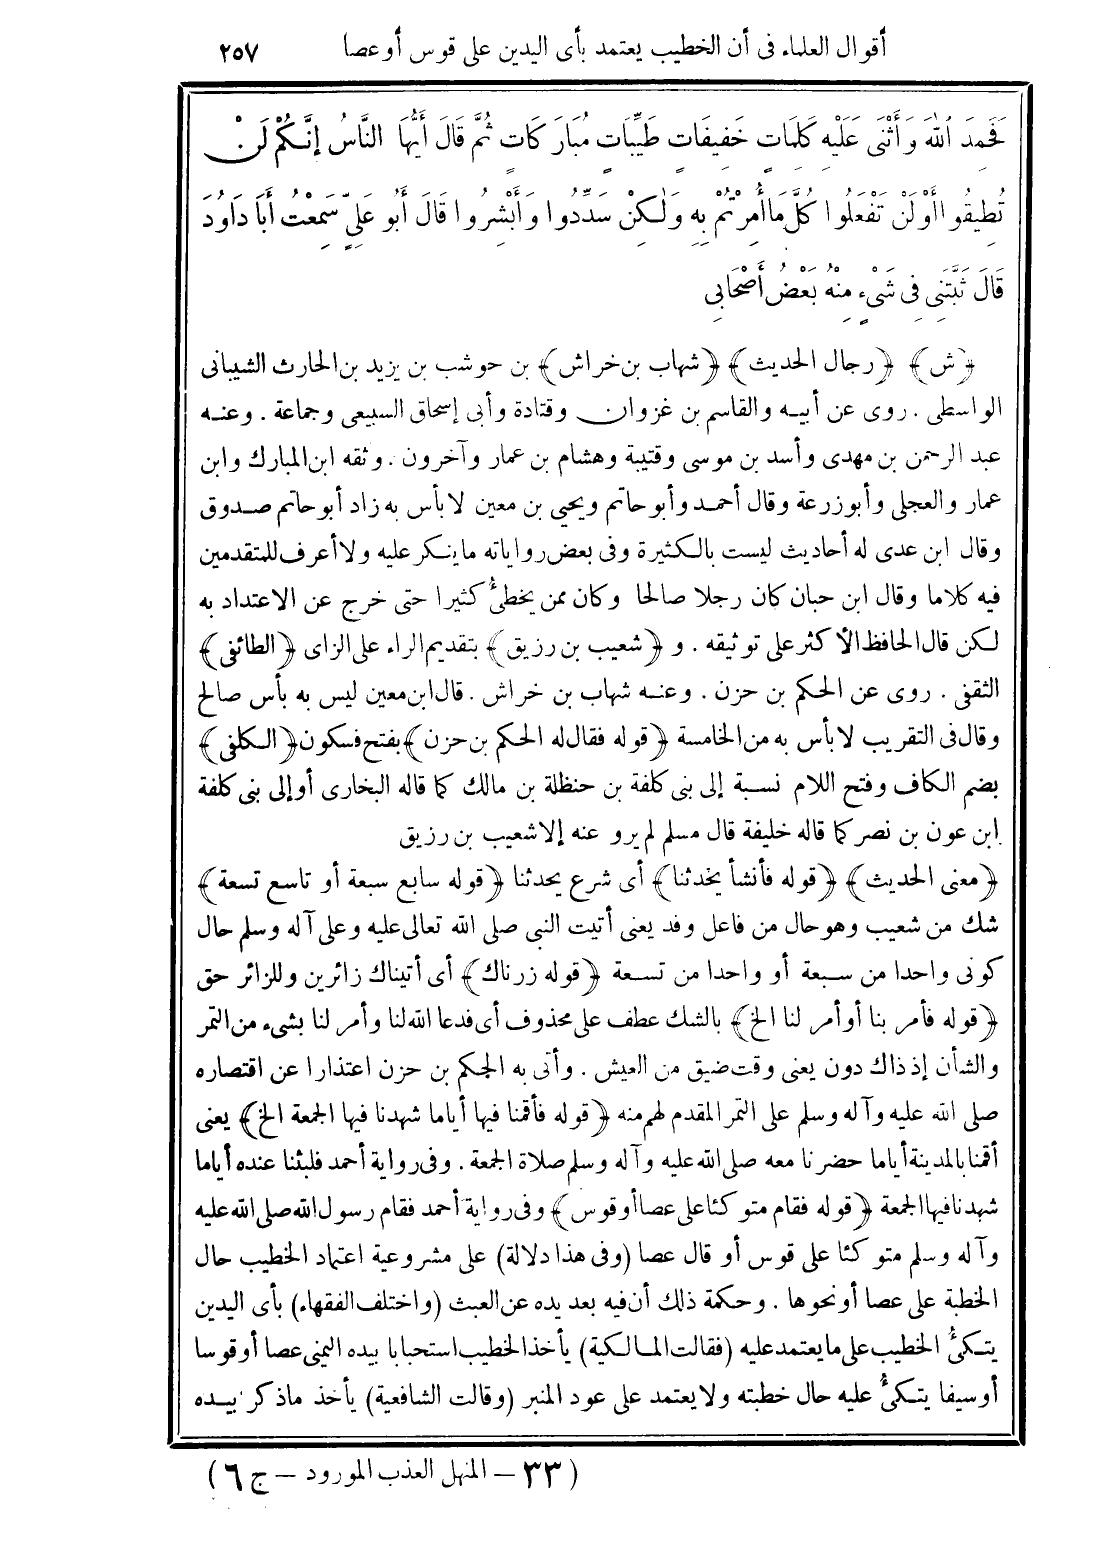 أقوال العلماء فى أن الخطيب يعتمد بأى اليدين على قوس أو عصا ٢٥٧
فَحَمِدَ اللهَ وَأَثْنَى عَلَيْهِ كَلِمَاتٍ خَفِيفَاتٍ طَيِّبَاتٍ مُبَارَكَاتٍ ثُمَّ قَالَ أَيُّهَا النَّاسُ إِنَّكُمْ لَنْ
تُطِيقُوا أَوْ لَنْ تَفْعَلُوا كُلَّ مَا أُمِرْتُمْ بِهِ وَلَكِنْ سَدِّدُوا وَأَبْشِرُوا قَالَ أَبُو عَلِيٍّ سَمِعْتُ أَبَا دَاوُدَ
قَالَ ثَبَّتَنِى فِى شَىْءٍ مِنْهُ بَعْضُ أَصْحَابِى
﴿ش﴾ ﴿رجال الحديث﴾ ﴿شهاب بن خراش﴾ بن حوشب بن يزيد بن الحارث الشيبانى
الواسطى . روى عن أبيه والقاسم بن غزوان وقتادة وأبى إسحاق السبيعى وجماعة . وعنه
عبد الرحمن بن مهدى وأسد بن موسى وقتيبة وهشام بن عمار وآخرون . وثقه ابن المبارك وابن
عمار والعجلى وأبو زرعة وقال أحمد وأبو حاتم ويحيى بن معين لا بأس به زاد أبو حاتم صدوق
وقال ابن عدى له أحاديث ليست بالكثيرة وفى بعض رواياته ما ينكر عليه ولا أعرف للمتقدمين
فيه كلاما وقال ابن حبان كان رجلا صالحا وكان ممن يخطئ كثيرا حتى خرج عن الاعتداد به
لكن قال الحافظ الأكثر على توثيقه . و ﴿شعيب بن رزيق﴾ بتقديم الراء على الزاى ﴿الطائفى﴾
الثقفى . روى عن الحكم بن حزن . وعنه شهاب بن خراش . قال ابن معين ليس به بأس صالح
وقال فى التقريب لا بأس به من الخامسة ﴿قوله فقال له الحكم بن حزن﴾ بفتح فسكون ﴿الكلفى﴾
بضم الكاف وفتح اللام نسبة إلى بنى كلفة بن حنظلة بن مالك كما قاله البخارى أو إلى بنى كلفة
ابن عون بن نصر كما قاله خليفة قال مسلم لم يرو عنه إلا شعيب بن رزيق
﴿معنى الحديث﴾ ﴿قوله فأنشأ يحدثنا﴾ أى شرع يحدثنا ﴿قوله سابع سبعة أو تاسع تسعة﴾
شك من شعيب وهو حال من فاعل وفد يعنى أتيت النبى صلى الله تعالى عليه وعلى آله وسلم حال
كونى واحدا من سبعة أو واحدا من تسعة ﴿قوله زرناك﴾ أى أتيناك زائرين وللزائر حق
﴿قوله فأمر بنا أو أمر لنا الخ﴾ بالشك عطف على محذوف أى فدعا الله لنا وأمر لنا بشىء من التمر
والشأن إذ ذاك دون يعنى وقت ضيق من العيش . وأتى به الحكم بن حزن اعتذارا عن اقتصاره
صلى الله عليه وآله وسلم على التمر المقدم لهم منه ﴿قوله فأقمنا فيها أياما شهدنا فيها الجمعة الخ﴾ يعنى
أقمنا بالمدينة أياما حضرنا معه صلى الله عليه وآله وسلم صلاة الجمعة . وفى رواية أحمد فلبثنا عنده أياما
شهدنا فيها الجمعة ﴿قوله فقام متوكئا على عصا أو قوس﴾ وفى رواية أحمد فقام رسول الله صلى الله عليه
وآله وسلم متوكئا على قوس أو قال عصا (وفى هذا دلالة) على مشروعية اعتماد الخطيب حال
الخطبة على عصا أو نحوها . وحكمة ذلك أن فيه بعد يده عن العبث (واختلف الفقهاء) بأى اليدين
يتكئ الخطيب على ما يعتمد عليه (فقالت المالكية) يأخذ الخطيب استحبابا بيده اليمنى عصا أو قوسا
أو سيفا يتكئ عليه حال خطبته ولا يعتمد على عود المنبر (وقالت الشافعية) يأخذ ما ذكر بيده
(٣٣ – المنهل العذب المورود – ج ٦)